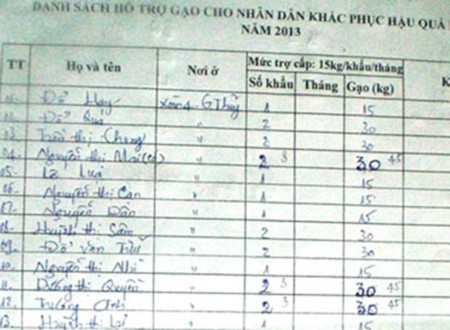 DANH SÁCH HỖ TRỢ GẠO CHO NHÂN DÂN KHẮC PHỤC HẬU QUẢ
NĂM 2013
TT Họ và tên Nơi ở Mức trợ cấp: 15kg/khẩu/tháng K
Số khẩu Tháng Gạo (kg)
01. Đỗ Hay xóm 4 G Thủy 1 15
02. Đỗ Quá " 2 30
03. Trần thị Chung " 2 30
04. Nguyễn thị Mai " 2 3 30 45
05. Lê Lụa " 1 15
06. Nguyễn thị Can " 1 15
07. Nguyễn Dần " 1 15
08. Huỳnh thị Sâm " 2 30
09. Đỗ Văn " 2 30
10. Nguyễn thị Nhi " 1 15
11. Dương thị Quyền " 2 3 30 45
12. Trương Anh " 2 3 30 45
13. Huỳnh thị " 1 15